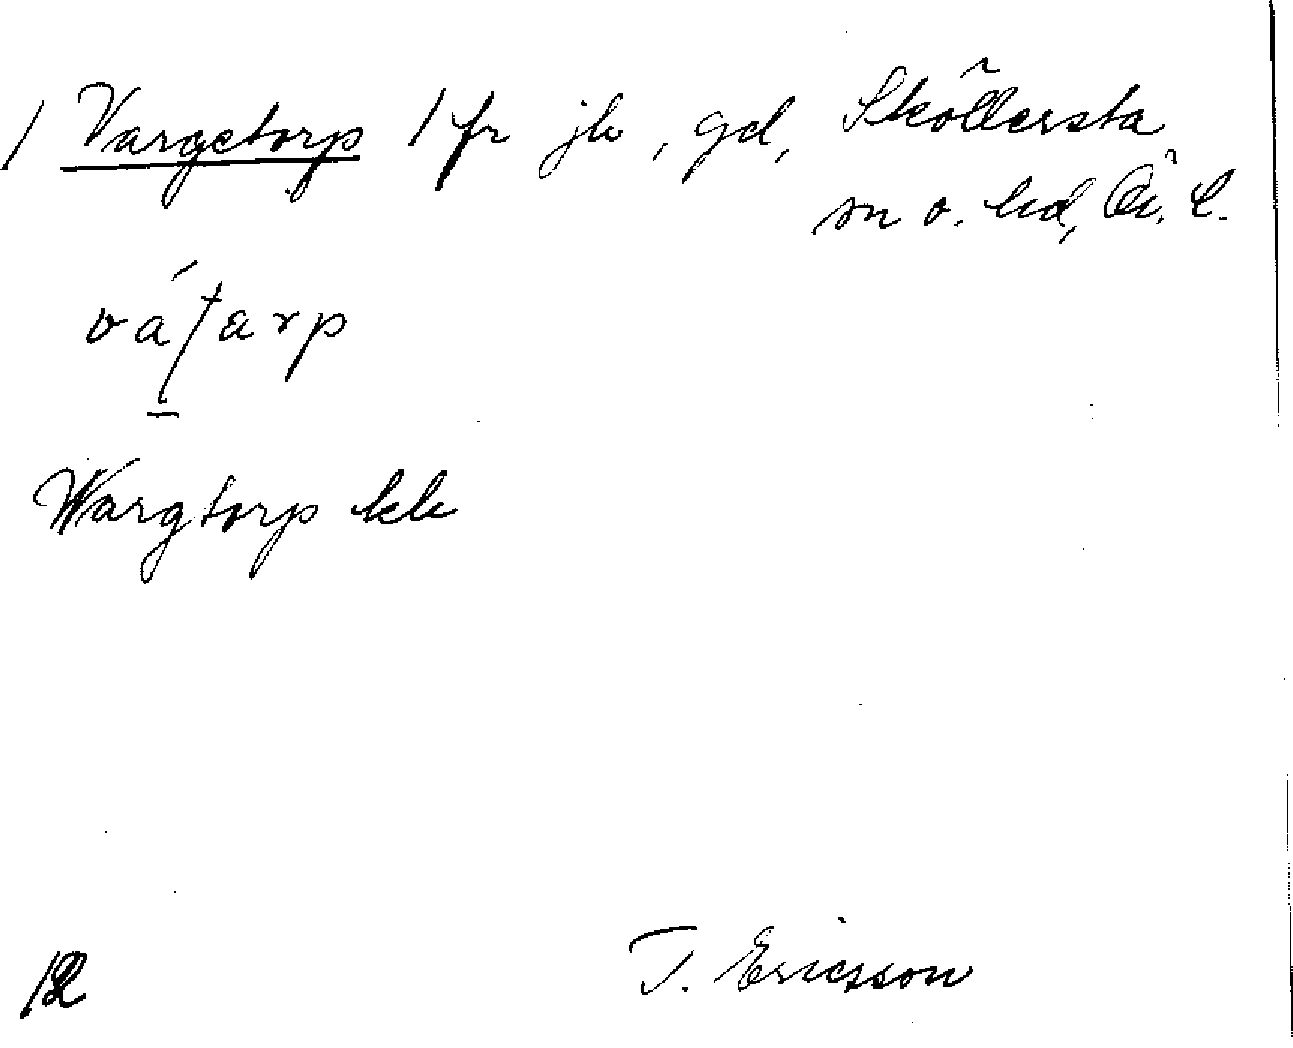 / Vargetorp / fr jb, gd, Sköllersta
sn o. hd, Ör. L.
Wargtorp kb
12
T. Ericsson